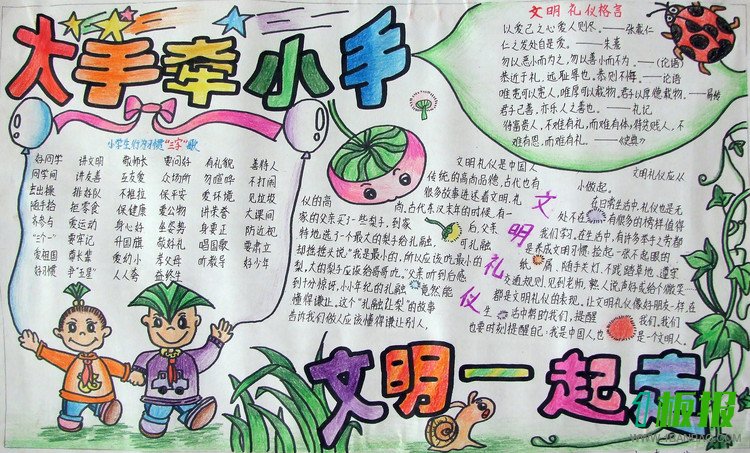 大手牵小手
小学生行为习惯"三字"歌
好同学 讲文明 敬师长 要问好 有礼貌 善待人
同学间 讲友善 互友爱 众场所 勿喧哗 不打闹
去出操 排好队 不拥拉 保平安 爱环境 见垃圾
随手拾 拒零食 保健康 爱公物 讲荣誉 大课间
齐参与 爱运动 身心好 坐姿势 身要正 防近视
"三个一" 要牢记 升国旗 敬好礼 唱国歌 要肃立
爱祖国 尊长辈 爱幼小 孝父母 听教导 好少年
好习惯 争"五星" 人人夸 益终生
文明礼仪格言
以爱己之心爱人则尽。——张载
仁之发处自是爱。——朱熹
勿以恶小而为之,勿以善小而不为。
恭近于礼,远耻辱也。恭则不侮。——论语
唯宽可以容人,唯厚可以载物。君子以厚德载物。——易传
君子己善,亦乐人之善也。——礼记
待富贵人,不难有礼,而难有体;待贫贱人,不
难有恩,而难有礼。
文明礼仪
文明礼仪是中国人
传统的高尚品德,古代也有
很多故事讲述着文明礼
仪的高尚,古代东汉末年的时候,有一
家的父亲买了一些梨子,到家后,父亲
特地选了一个最大的梨子给孔融,可孔融
却摇摇头说:"我是最小的,所以应该吃最小的
梨,大的梨子应该给哥哥吃。"父亲听到后感
到十分惊讶,小小年纪的孔融竟然能
懂得谦让。这个"孔融让梨"的故事
告诉我们做人应该懂得谦让别人。
文明礼仪应从
小做起。
在日常生活中,礼仪也是无
处不在,有很多的榜样值得
我们学习,在生活中,有许多举手之劳都
是养成文明习惯:捡起一张不起眼的
纸屑、随手关灯、不践踏草地、遵守
交通规则、见到老师、熟人说声好或给个微笑…
都是文明礼仪的表现。让文明礼仪像好朋友一样,在
生活中帮助我们,提醒我们,我们
也要时刻提醒自己:我是中国人,也是一个文明人。
文明一起走
板报